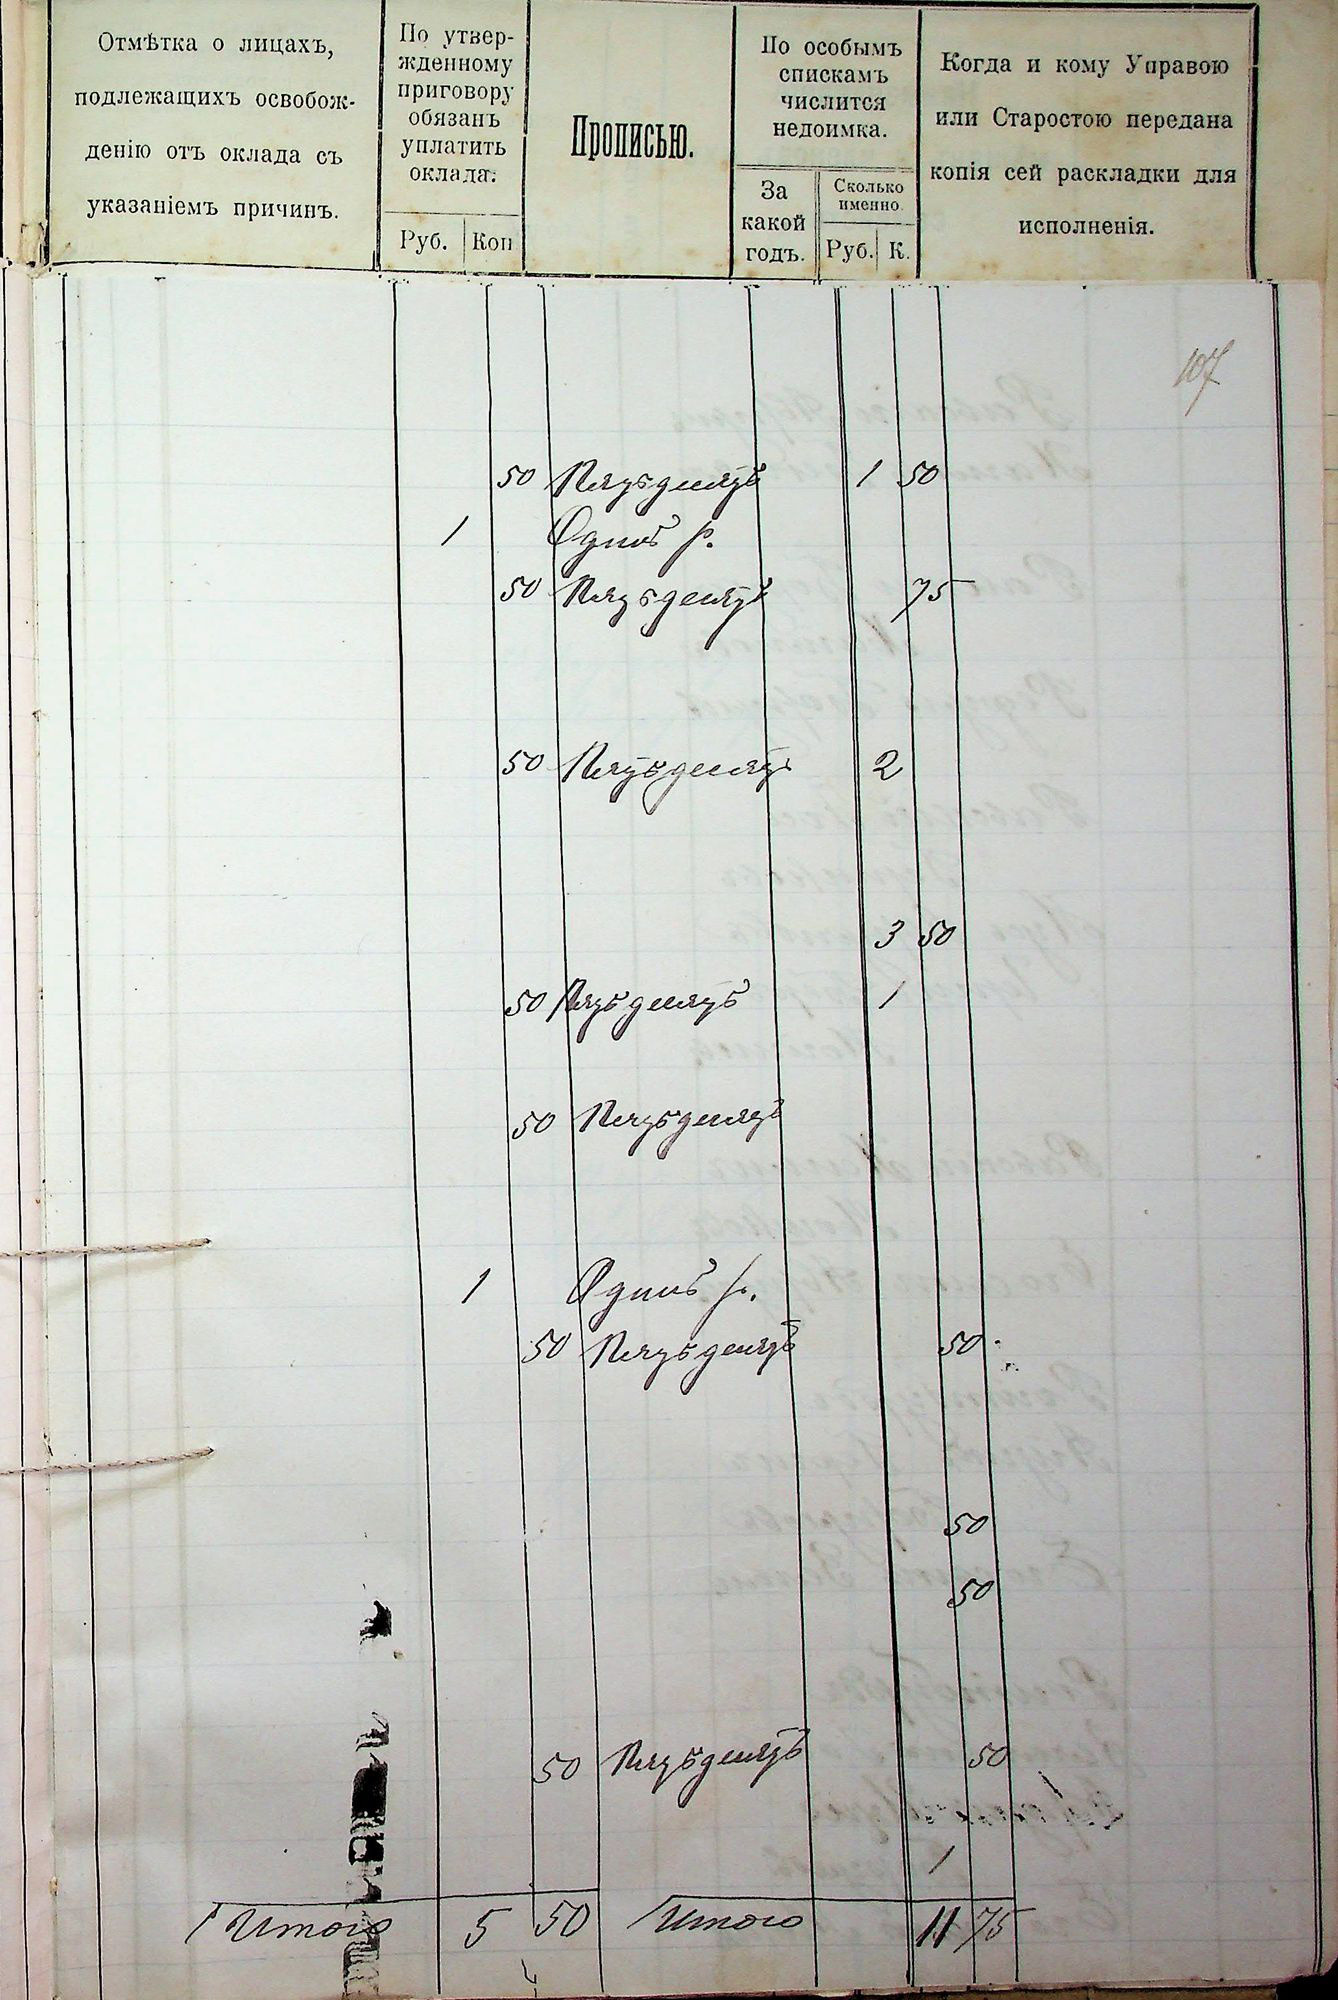 Отмѣтка о лицахъ,
подлежащихъ освобож-
денію отъ оклада съ
указаніемъ причинъ.
По утвер-
жденному
приговору
обязанъ
уплатить
оклада:
Руб. Коп
Прописью.
По особымъ
спискамъ
числится
недоимка.
За
какой
годъ.
Сколько
именно.
Руб. К.
Когда и кому Управою
или Старостою передана
копія сей раскладки для
исполненія.
107
50 Пятьдесятъ 1 50
1 Одинъ р.
50 Пятьдесятъ 75
50 Пятьдесятъ 2
3 50
50 Пятьдесятъ 1
50 Пятьдесятъ
1 Одинъ р.
50 Пятьдесятъ 50
50
50
50 Пятьдесятъ 50
1
Итого 5 50 Итого 11 75